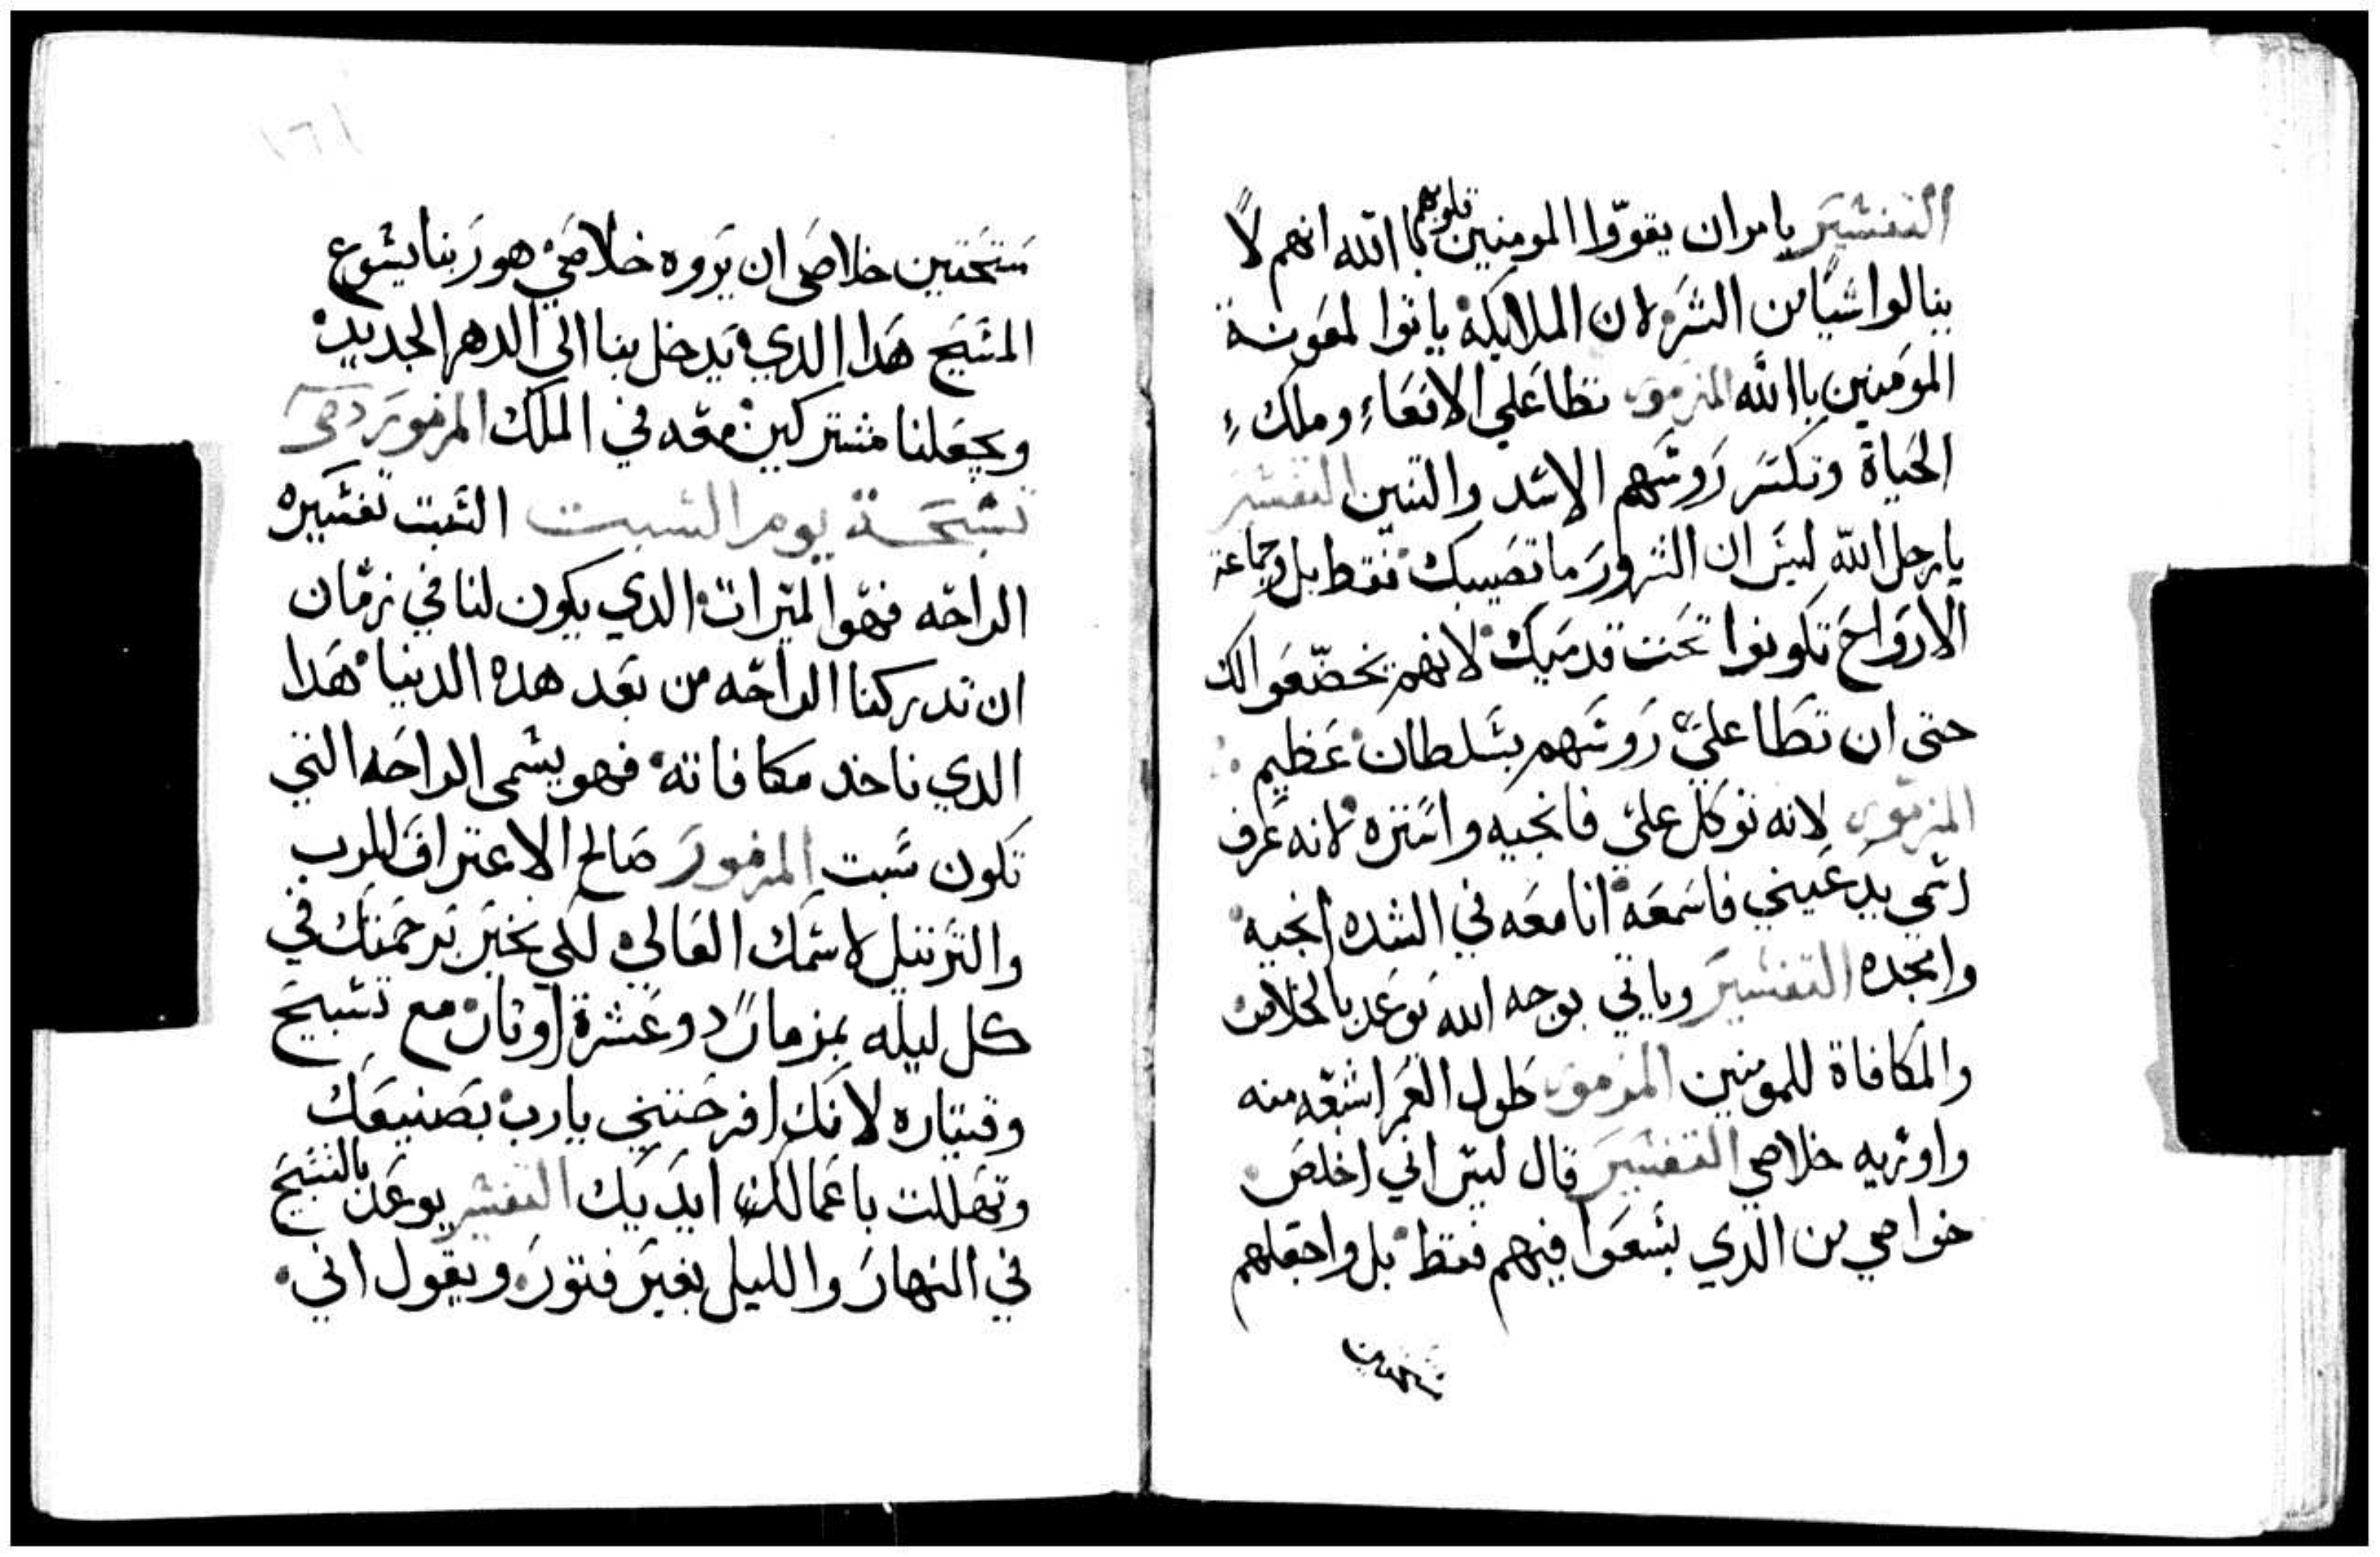 التفسير يامران يقووا المومنين قلوبهم باالله انهم لا
ينالوا شيا من الشر لان الملايكة ياتوا لمعونة
المومنين باالله المزمور تطا علي الافعاء وملك
الحياة وتكسر روسهم الاسد والتنين التفسير
يارجل الله ليس ان الشرور ما تصيبك فقط بل وجماعة
الارواح تكونوا تحت قدميك لانهم يخضعوا لك
حتى ان تطا علي روسهم بسلطان عظيم
المزمور لانه توكل علي فانجيه واستره لانه عرف
اسمي يدعيني فاسمعه انا معه في الشده انجيه
وامجده التفسير وياتي بوجه الله يوعد بالخلاص
والمكافاة للمومنين المزمور طول العمر اشبعه منه
واوريه خلاصي التفسير قال ليس اني اخلص
خواصي من الذي يسعوا فيهم فقط بل واجعلهم
مستحقين
مستحقين خلاصى ان يروه خلاصي هو ربنا يسوع
المسيح هدا الدي يدخل بنا الي الدهر الجديد
ويجعلنا مشتركين معه في الملك المزمور
تسبحة يوم السبت السبت تفسيره
الراحه فهوا لميرات الدي يكون لنا في زمان
ان تدركنا الراحه من بعد هده الدنيا هدا
الدي ناخد مكافاته فهو يسمى الراحه التي
تكون سبت المزمور صالح الاعتراف للرب
والترتيل لاسمك العالي لكي نخبر برحمتك في
كل ليله بمزمار دو عشرة اوتار مع تسبيح
وقيتاره لانك افرحتني يارب بصنيعك
وتهللت باعمالك ايديك التفسير يوعد بالتسبيح
في النهار والليل بغير فتور ويقول اني